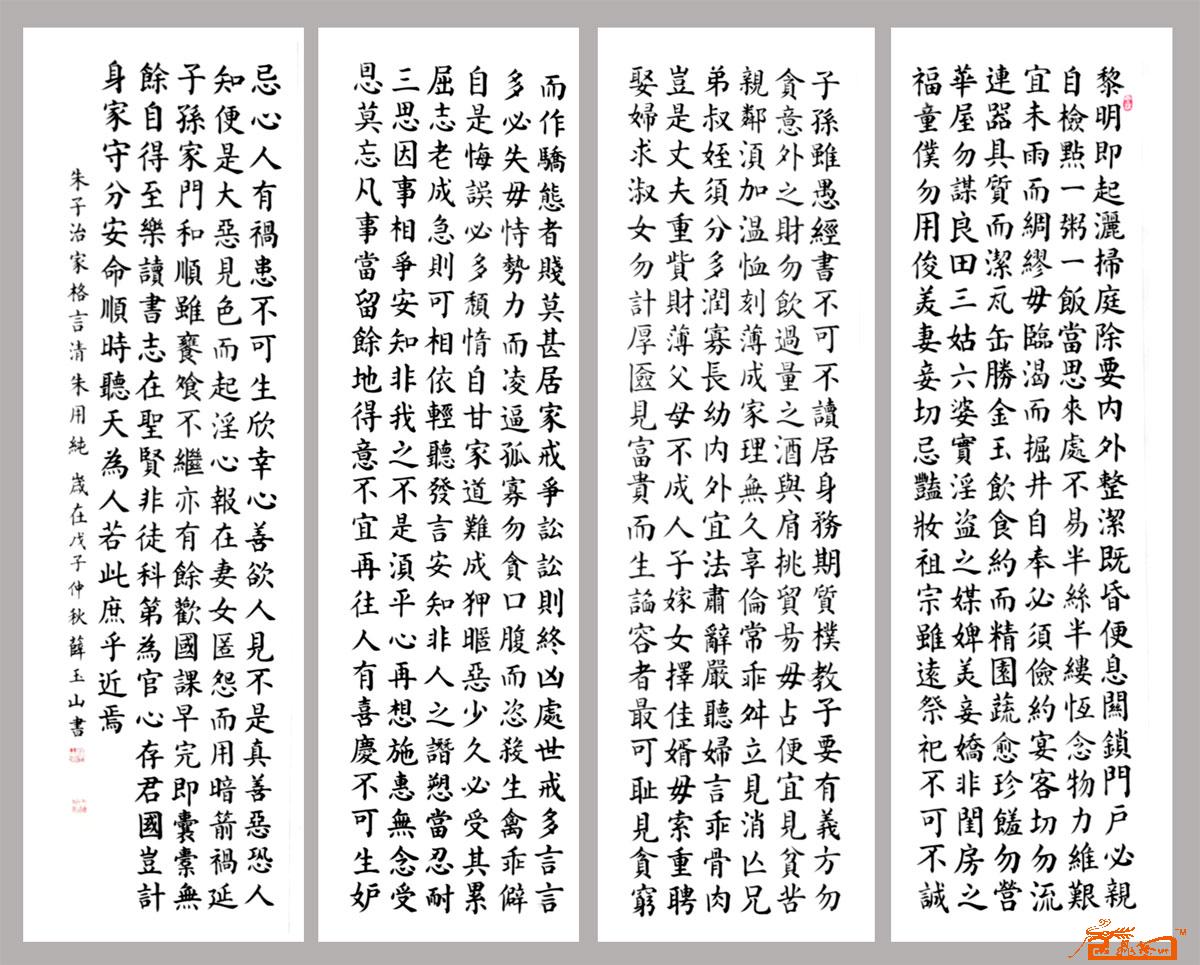 黎明即起灑掃庭除要内外整潔既昏便息關鎖門户必親
自檢點一粥一飯當思來處不易半絲半縷恆念物力維艱
宜未雨而綢繆毋臨渴而掘井自奉必須儉約宴客切勿流
連器具質而潔瓦缶勝金玉飲食約而精園蔬愈珍饈勿營
華屋勿謀良田三姑六婆實淫盜之媒婢美妾嬌非閨房之
福童僕勿用俊美妻妾切忌豔妝祖宗雖遠祭祀不可不誠
子孫雖愚經書不可不讀居身務期質樸教子要有義方勿
貪意外之財勿飲過量之酒與肩挑貿易毋占便宜見貧苦
親鄰須加温恤刻薄成家理無久享倫常乖舛立見消亾兄
弟叔姪須分多潤寡長幼内外宜法肅辭嚴聽婦言乖骨肉
豈是丈夫重貲財薄父母不成人子嫁女擇佳婿毋索重聘
娶婦求淑女勿計厚匳見富貴而生諂容者最可恥見貧窮
而作驕態者賤莫甚居家戒爭訟訟則終凶處世戒多言言
多必失毋恃勢力而凌逼孤寡勿貪口腹而恣殺生禽乖僻
自是悔誤必多頹惰自甘家道難成狎暱惡少久必受其累
屈志老成急則可相依輕聽發言安知非人之譖愬當忍耐
三思因事相爭安知非我之不是須平心再想施惠無念受
恩莫忘凡事當留餘地得意不宜再往人有喜慶不可生妒
忌心人有禍患不可生欣幸心善欲人見不是真善惡恐人
知便是大惡見色而起淫心報在妻女匿怨而用暗箭禍延
子孫家門和順雖饔飧不繼亦有餘歡國課早完即囊橐無
餘自得至樂讀書志在聖賢非徒科第為官心存君國豈計
身家守分安命順時聽天為人若此庶乎近焉
朱子治家格言清朱用純 歲在戊子仲秋薛玉山書